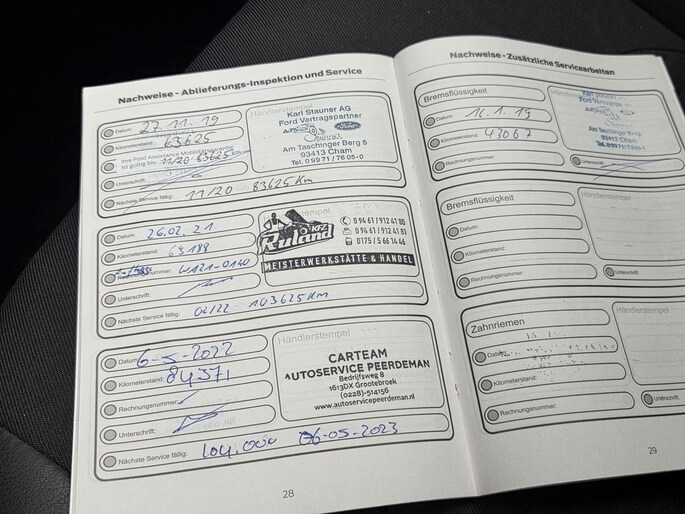 Nachweise - Ablieferungs-Inspektion und Service
Datum: 27.11.19
Kilometerstand: 63625
Ihre Ford Assistance Mobilitätsgarantie
ist gültig bis: 11/20 83625 km
Unterschrift:
Nächste Service fällig: 11/20 83625 Km
Händlerstempel
Karl Stauner AG
Ford Vertragspartner
Ford
Am Taschinger Berg 5
93413 Cham
Tel. 09971/7605-0
Datum: 26.02.21
Kilometerstand:
Rechnungsnummer: WA21-0140
Unterschrift:
Nächste Service fällig: 02/22 103625 Km
KFZ
Ruland
0 94 61 / 912 41 80
0175 / 5 66 14 46
MEISTERWERKSTÄTTE & HANDEL
Datum: 6-5-2022
Kilometerstand: 84371
Rechnungsnummer:
Unterschrift:
Nächste Service fällig: 104.000 06-05-2023
Händlerstempel
CARTEAM
AUTOSERVICE PEERDEMAN
Bedrijfsweg 8
1613DX Grootebroek
(0228)-514156
www.autoservicepeerdeman.nl
28
Nachweise - Zusätzliche Servicearbeiten
Bremsflüssigkeit
Datum: 16.1.19
Kilometerstand: 43067
Rechnungsnummer:
Karl Stauner AG
Ford Vertragspartner
Am Taschinger Berg 5
93413 Cham
Tel. 09971/7605-0
Unterschrift:
Bremsflüssigkeit
Datum:
Kilometerstand:
Rechnungsnummer:
Händlerstempel
Unterschrift:
Zahnriemen
Datum:
Kilometerstand:
Rechnungsnummer:
Händlerstempel
Unterschrift:
29